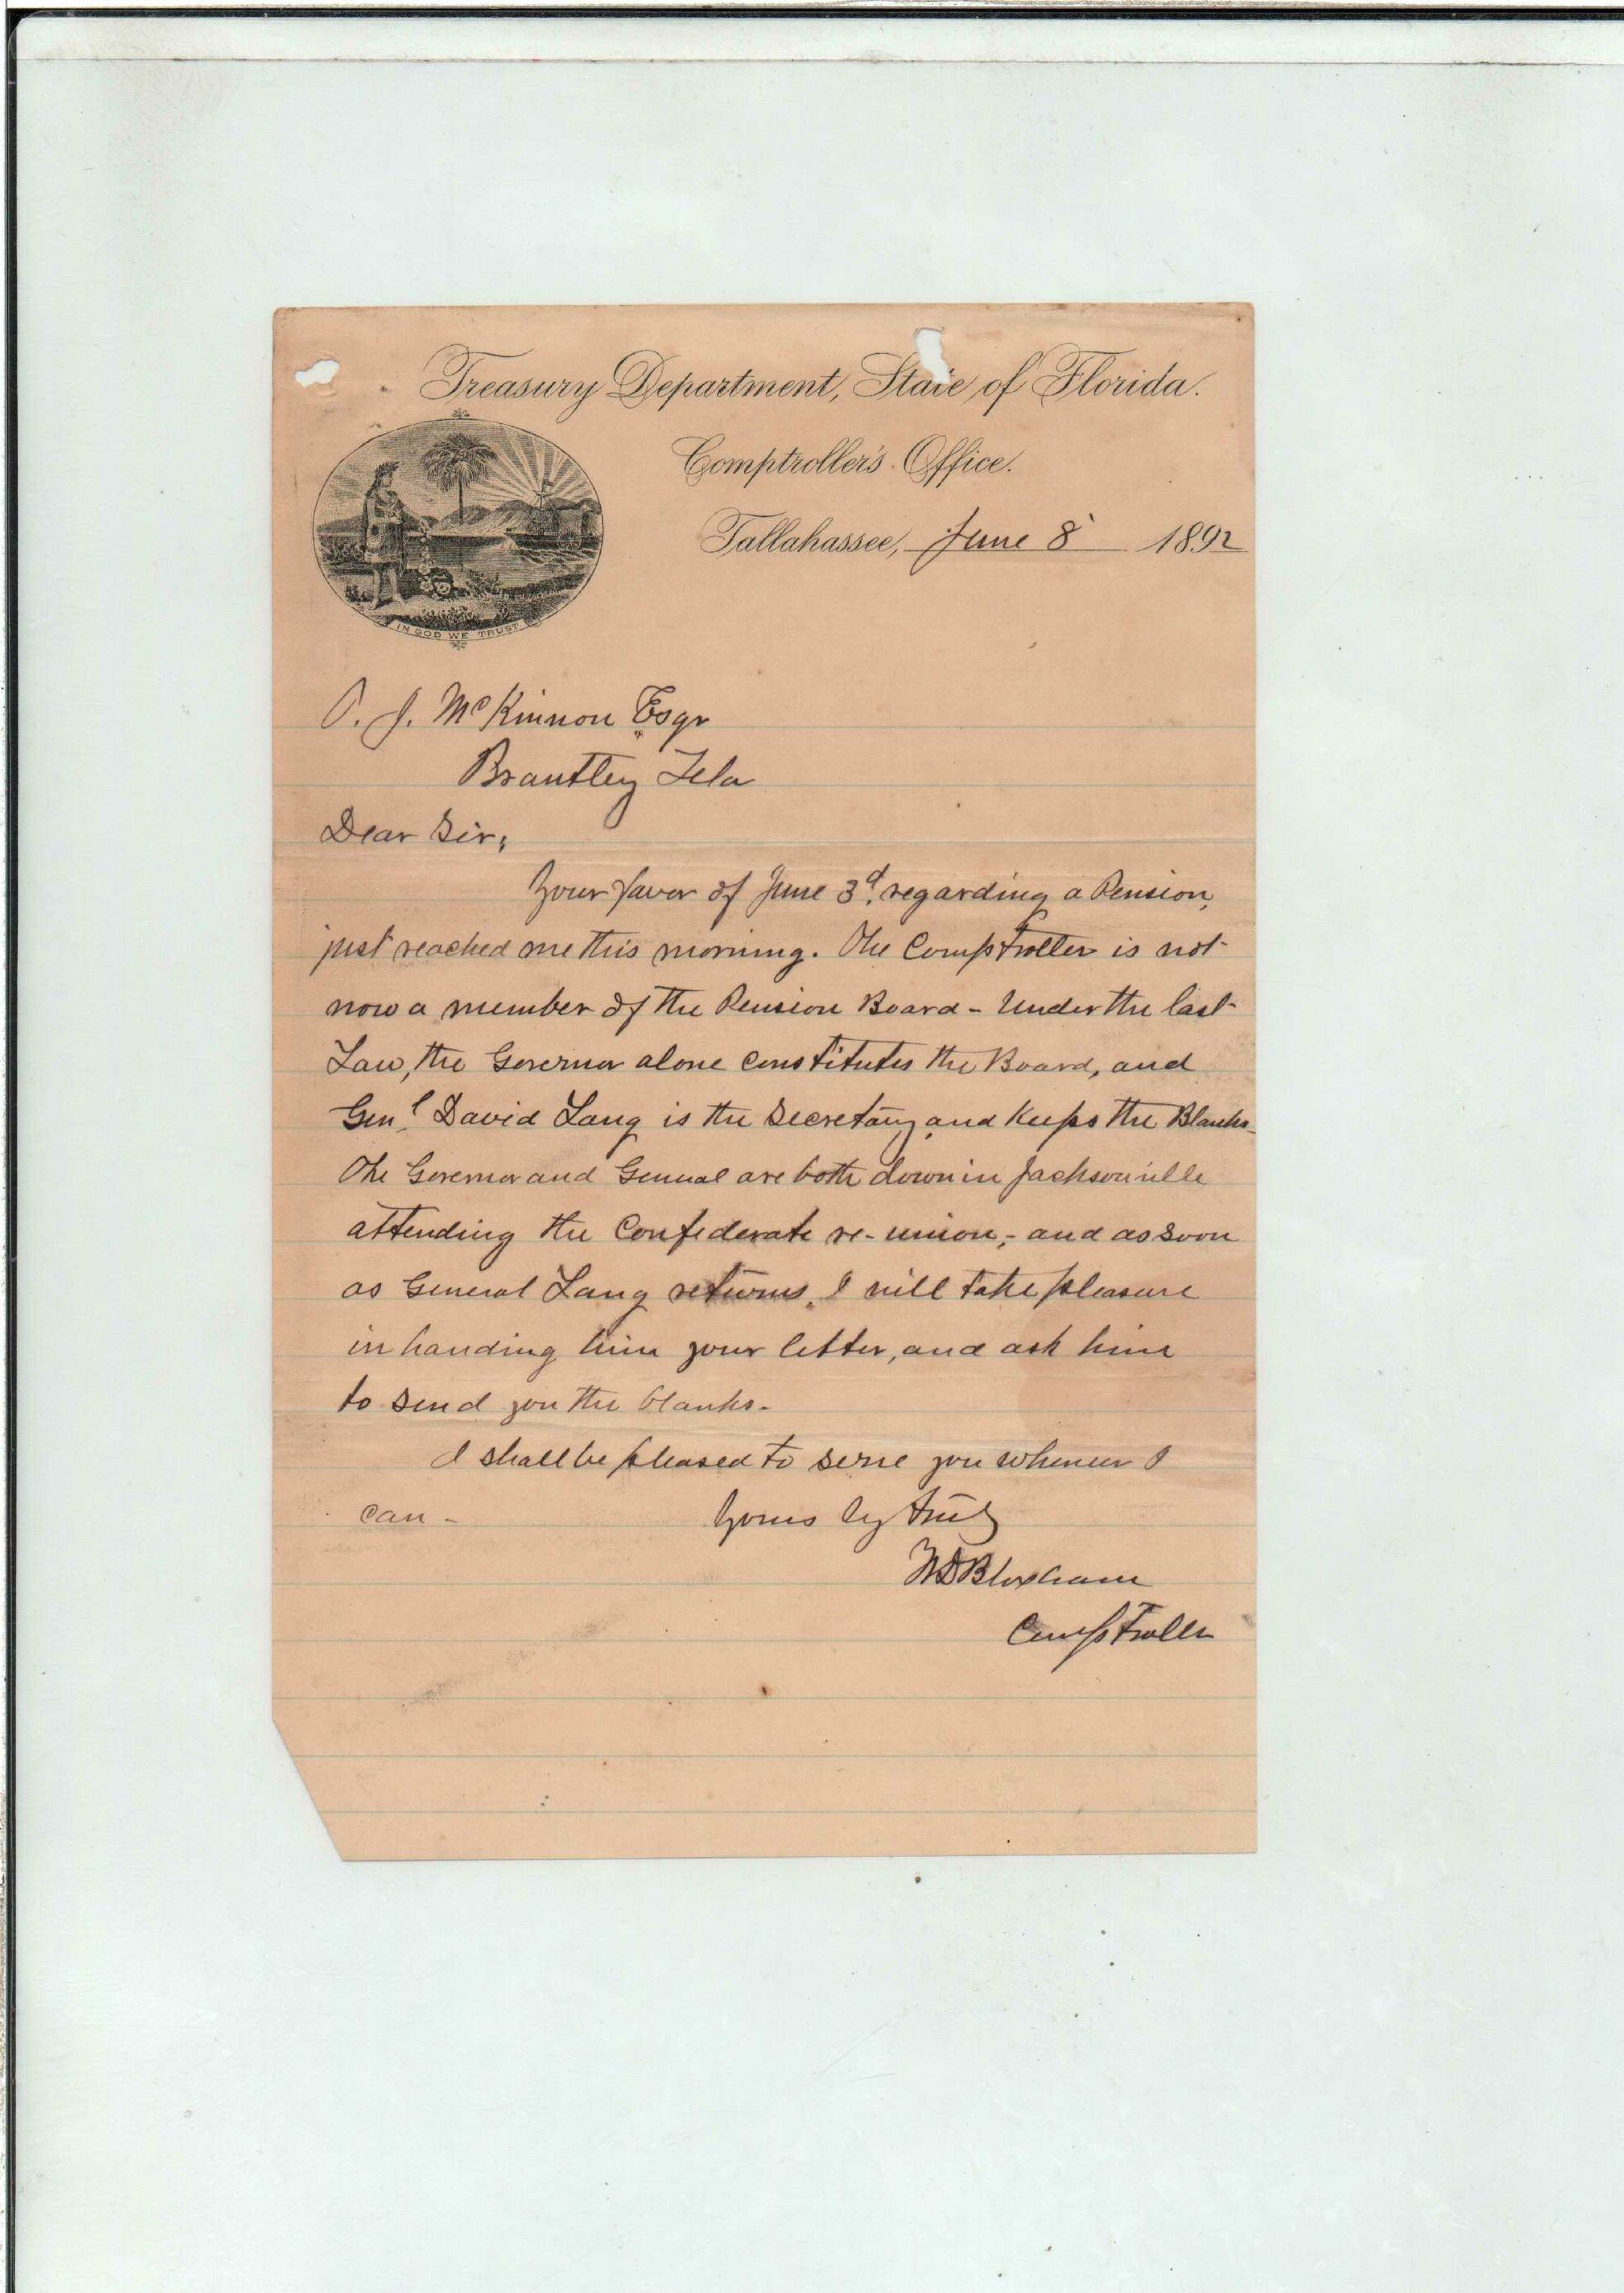 Treasury Department, State of Florida.
Comptroller's Office.
Tallahassee, June 8 1892
IN GOD WE TRUST
J. McKinnon Esqr
Brantley Fla
Dear Sir,
Your favor of June 3d, regarding a Pension,
just reached me this morning. The Comptroller is not
now a member of the Pension Board - Under the last
Law, the Governor alone constitutes the Board, and
Genl David Lang is the Secretary and Keeps the Blanks -
The Governor and General are both down in Jacksonville
attending the Confederate re-union, - and as soon
as General Lang returns, I will take pleasure
in handing him your letter, and ask him
to send you the blanks -
I shall be pleased to serve you whenever I
can - Yours Vy truly
WD Bloxham
Comptroller